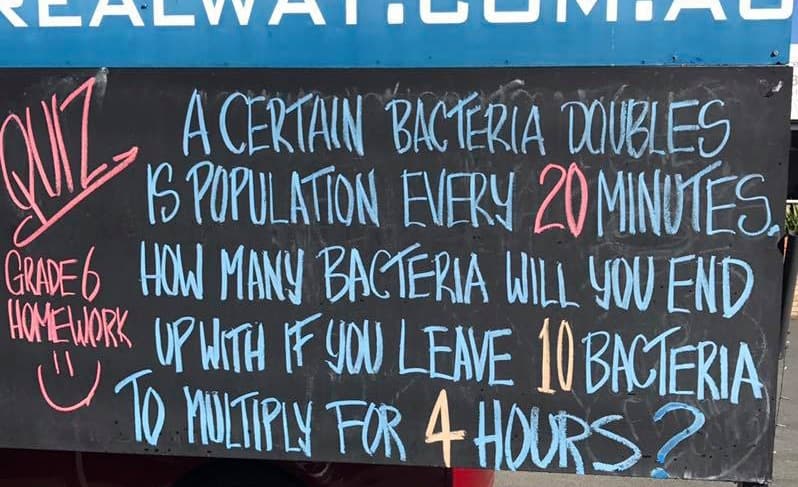 REALWAY.COM.AU
QUIZ
A CERTAIN BACTERIA DOUBLES
IS POPULATION EVERY 20 MINUTES.
GRADE 6
HOMEWORK
HOW MANY BACTERIA WILL YOU END
UP WITH IF YOU LEAVE 10 BACTERIA
TO MULTIPLY FOR 4 HOURS?